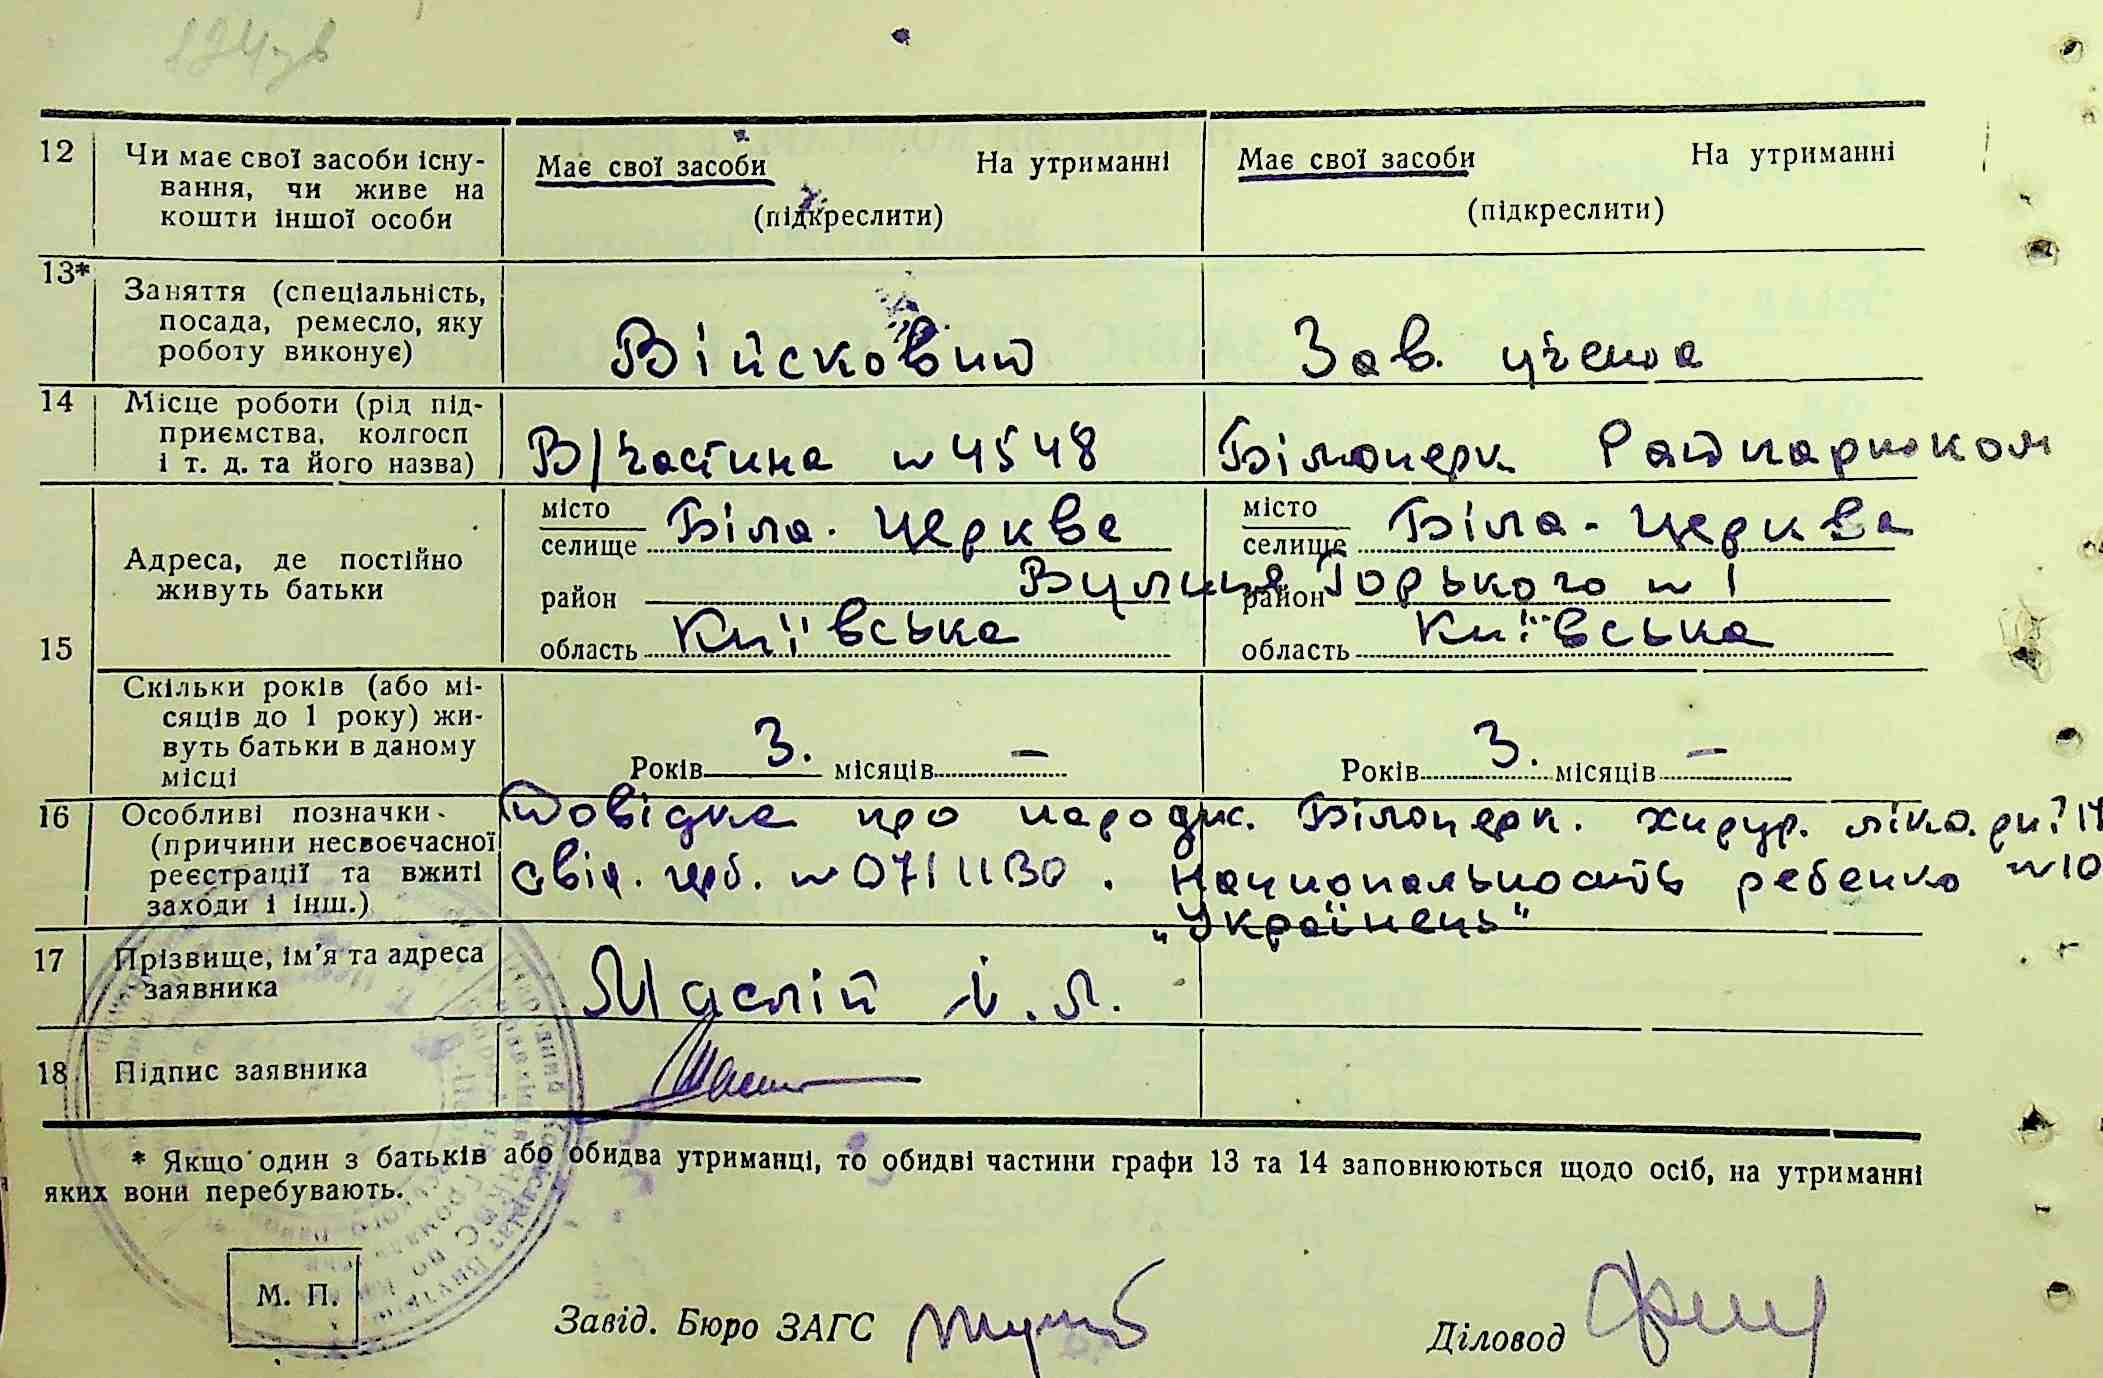 12 Чи має свої засоби існу-
вання, чи живе на
кошти іншої особи
Має свої засоби На утриманні
(підкреслити)
Має свої засоби На утриманні
(підкреслити)
13* Заняття (спеціальність,
посада, ремесло, яку
роботу виконує)
Військовий
Зав. учетоа
14 Місце роботи (рід під-
приємства, колгосп
і т. д. та його назва)
В/частина №4548
Білоцерк Райпартком
15 Адреса, де постійно
живуть батьки
місто
селище Біла-Церква
район
область Київська
місто
селище Біла-Церква
район
область Київська
Вулиця Горького №1
Скільки років (або мі-
сяців до 1 року) жи-
вуть батьки в даному
місці
Років 3. місяців —
Років 3. місяців —
16 Особливі позначки
(причини несвоєчасної
реєстрації та вжиті
заходи і інш.)
Довідка про народж. Білоцерк. хирур.
свід. №071130. Национальность ребенка №10
"Українець"
17 Прізвище, ім'я та адреса
заявника
Маслій І. Л.
18 Підпис заявника
* Якщо один з батьків або обидва утриманці, то обидві частини графи 13 та 14 заповнюються щодо осіб, на утриманні
яких вони перебувають.
М. П.
Завід. Бюро ЗАГС
Діловод